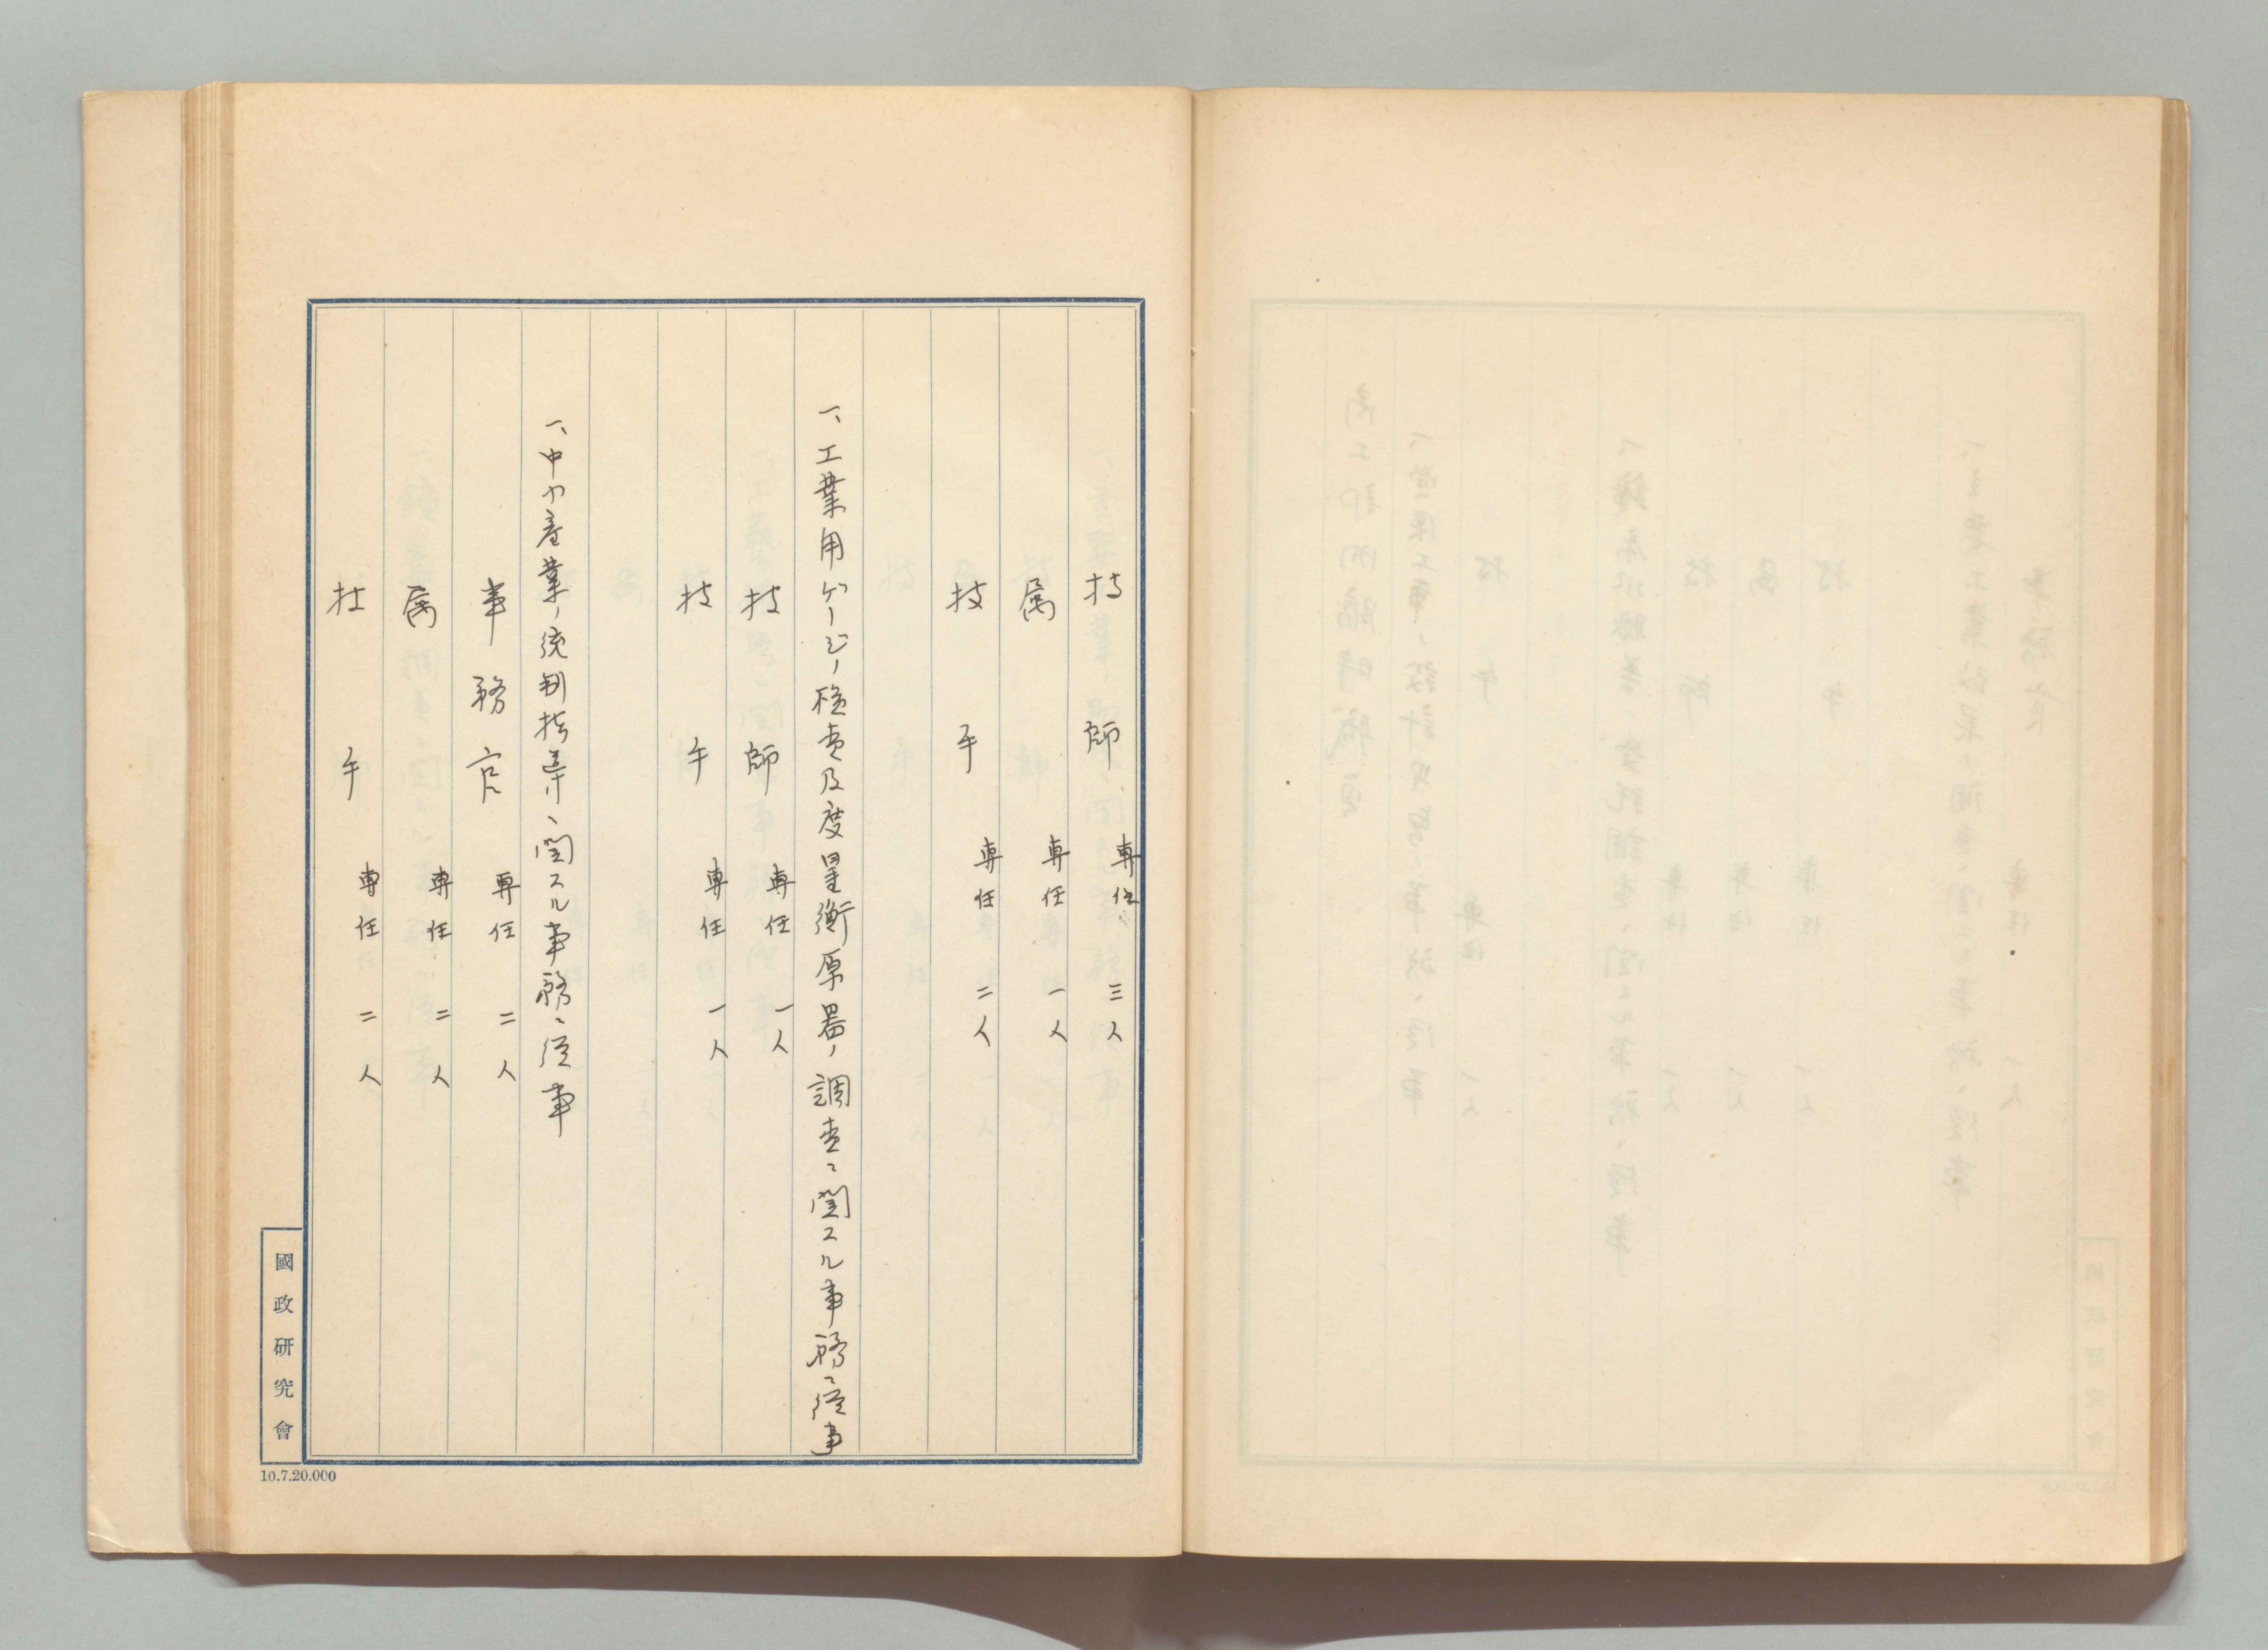 技師 専任 三人
属 専任 一人
技手 専任 二人
一、工業用ゲージノ検査及度量衡原器ノ調査ニ関スル事務ニ従事
技師 専任 一人
技手 専任 一人
一、中小産業ノ統制指導ニ関スル事務ニ従事
事務官 専任 二人
属 専任 二人
技手 専任 二人
國政研究會
10.7.20.000